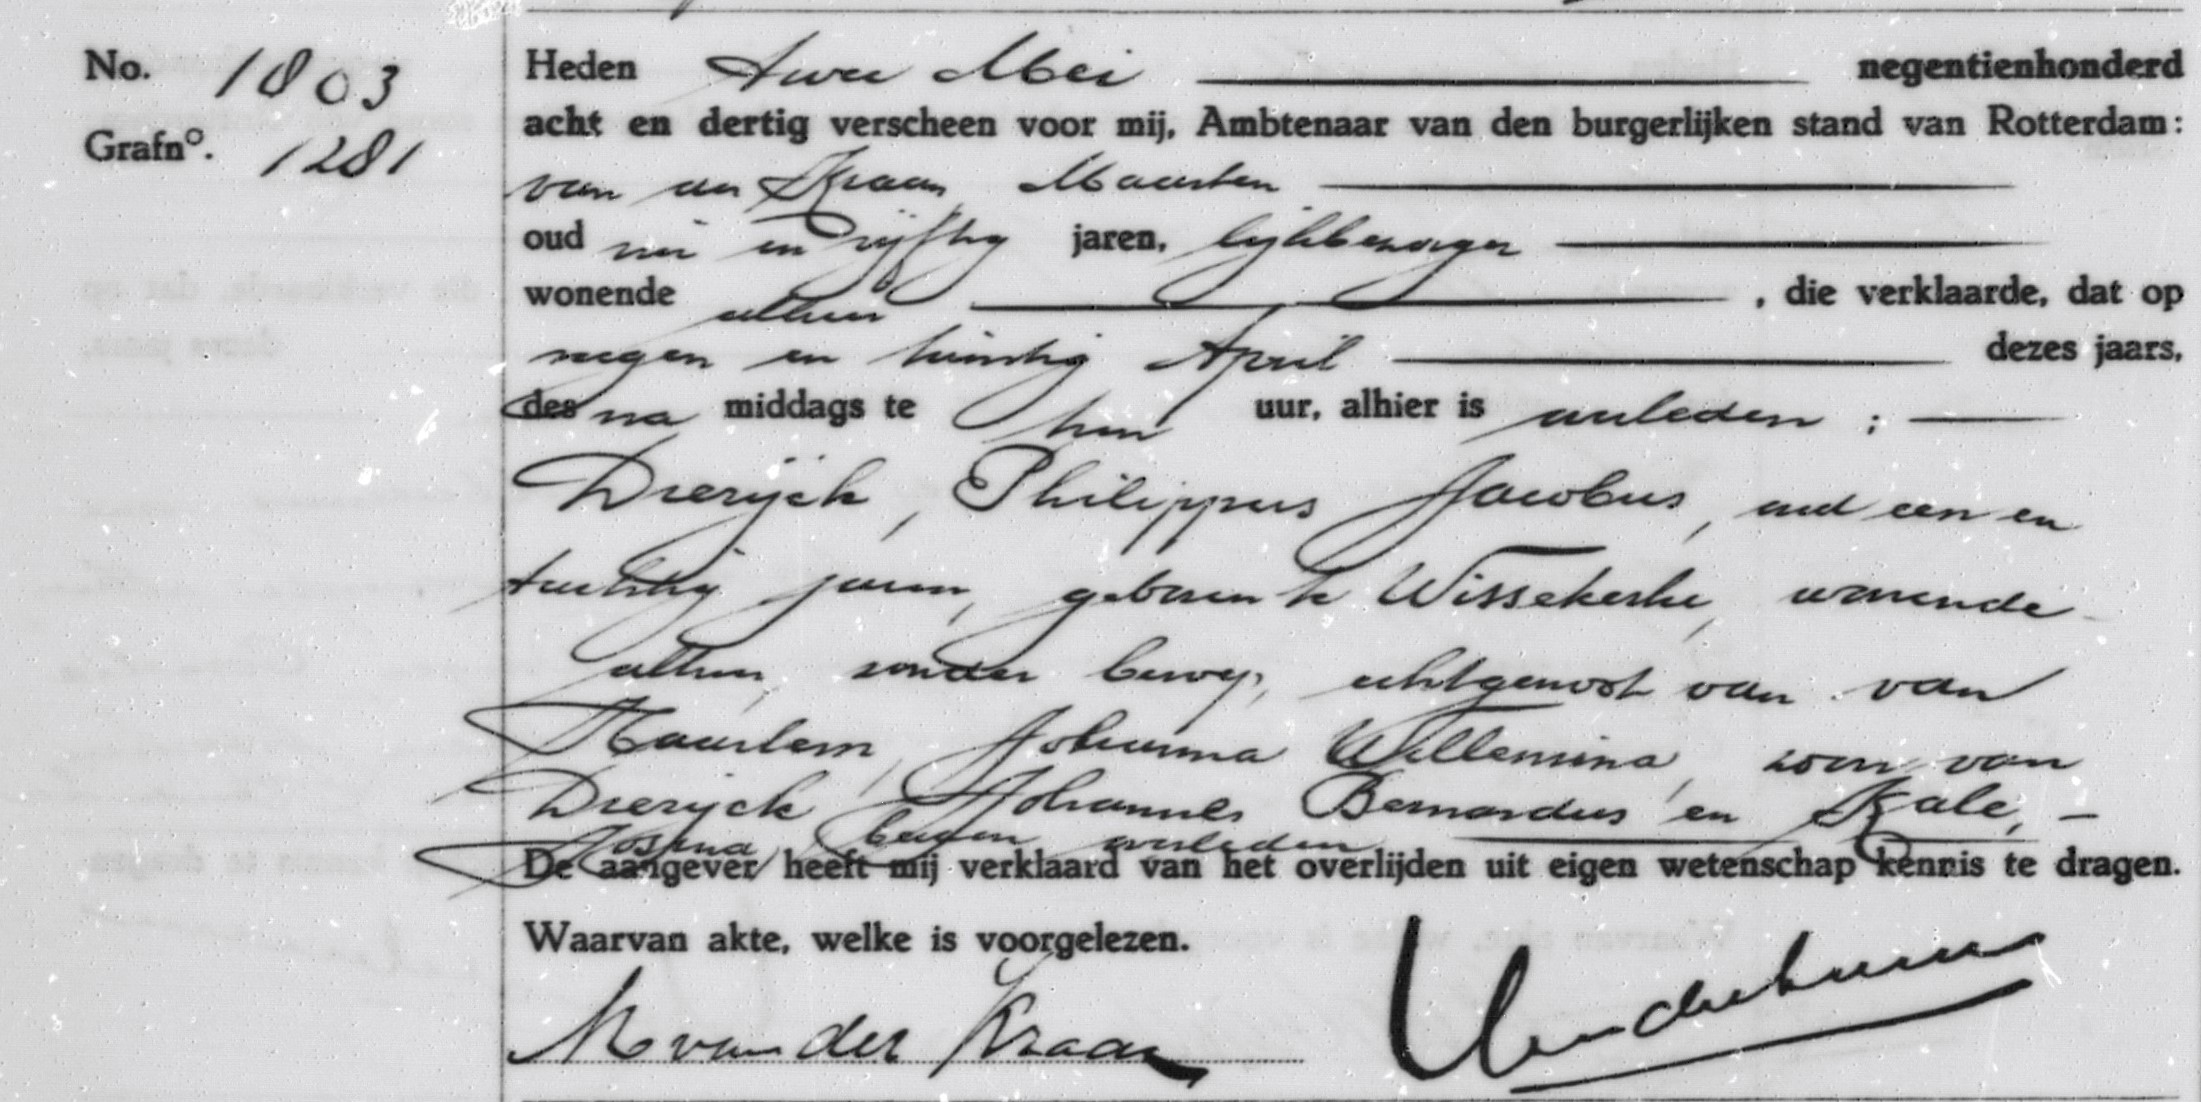 No. 1803
Grafno. 1281
Heden twee Mei negentienhonderd
acht en dertig verscheen voor mij, Ambtenaar van den burgerlijken stand van Rotterdam:
van der Kraan Maarten
oud en vijftig jaren, lijkbezorger
wonende alhier, die verklaarde, dat op
negen en twintig April dezes jaars,
des na middags te tien uur, alhier is overleden:
Dierijck, Philippus Jacobus, oud een en
tachtig jaren, geboren te Wissekerke, wonende
alhier, zonder beroep, echtgenoot van van
Haarlem, Johanna Willemina, zoon van
Dierijck, Johannes Bernardus en Kale, -
Josina, beiden overleden
De aangever heeft mij verklaard van het overlijden uit eigen wetenschap kennis te dragen.
Waarvan akte, welke is voorgelezen.
M van der Kraan